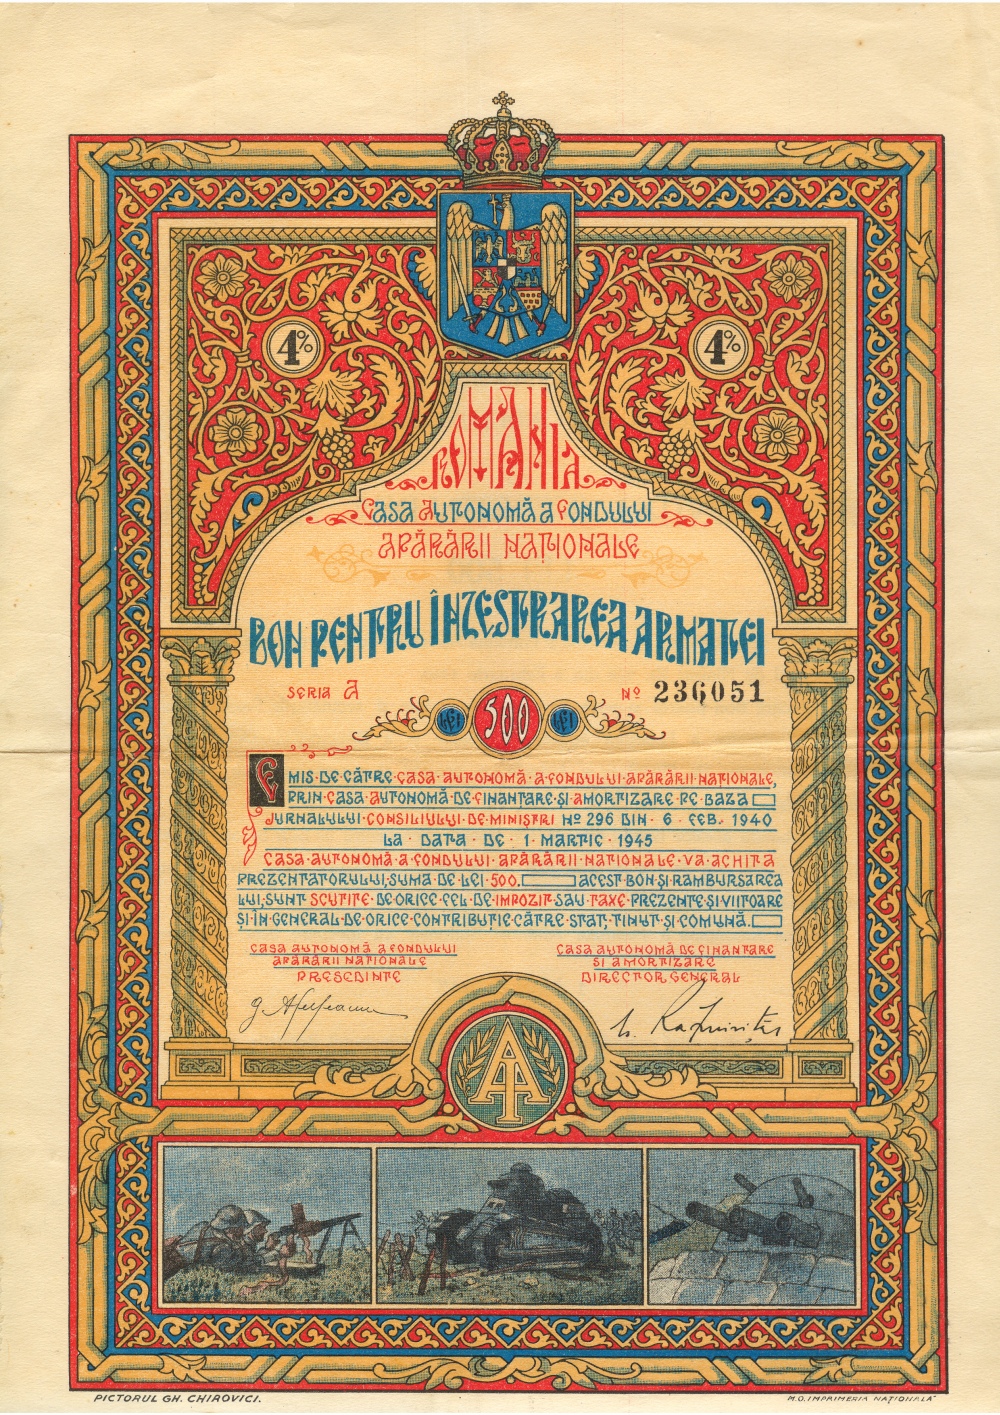 4%
4%
ROMÂNIA
CASA AUTONOMĂ A FONDULUI
APĂRĂRII NAȚIONALE
BON PENTRU ÎNZESTRAREA ARMATEI
SERIA A
Nº 236051
LEI 500 LEI
EMIS·DE·CĂTRE·CASA·AUTONOMĂ·A·FONDULUI·APĂRĂRII·NAȚIONALE,
PRIN·CASA·AUTONOMĂ·DE·FINANTARE·ȘI·AMORTIZARE·PE·BAZA
JURNALULUI·CONSILIULUI·DE·MINIȘTRI Nº 296 DIN·6·FEB.1940
LA·DATA·DE·1·MARTIE·1945
CASA·AUTONOMĂ·A·FONDULUI·APĂRĂRII·NATIONALE·VA·ACHITA
PREZENTATORULUI,SUMA·DE·LEI·500. ACEST·BON·ȘI·RAMBURSAREA
LUI,SUNT SCUTITE·DE·ORICE·FEL·DE·IMPOZIT·SAU·TAXE·PREZENTE·ȘI·VIITOARE
ȘI·ÎN·GENERAL·DE·ORICE·CONTRIBUȚIE·CĂTRE·STAT,ȚINUT·ȘI·COMUNĂ.
CASA AUTONOMĂ A FONDULUI
APĂRĂRII NAȚIONALE
PRESEDINTE
CASA AUTONOMĂ DE FINANTARE
SI AMORTIZARE
DIRECTOR GENERAL
AT
PICTORUL GH. CHIROVICI.
M.O. IMPRIMERIA NAȚIONALĂ